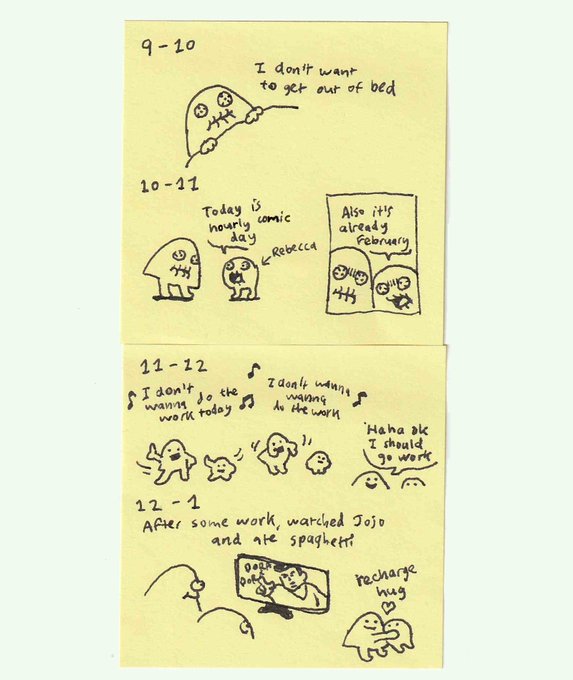 9-10
I don't want
to get out of bed
10-11
Today is
hourly comic
day
Rebecca
Also it's
already
February
11-12
I don't
wanna do the
work today
I don't wanna
wanna
do the work
Haha ok
I should
go work
12-1
After some work, watched Jojo
and ate spaghetti
recharge
hug